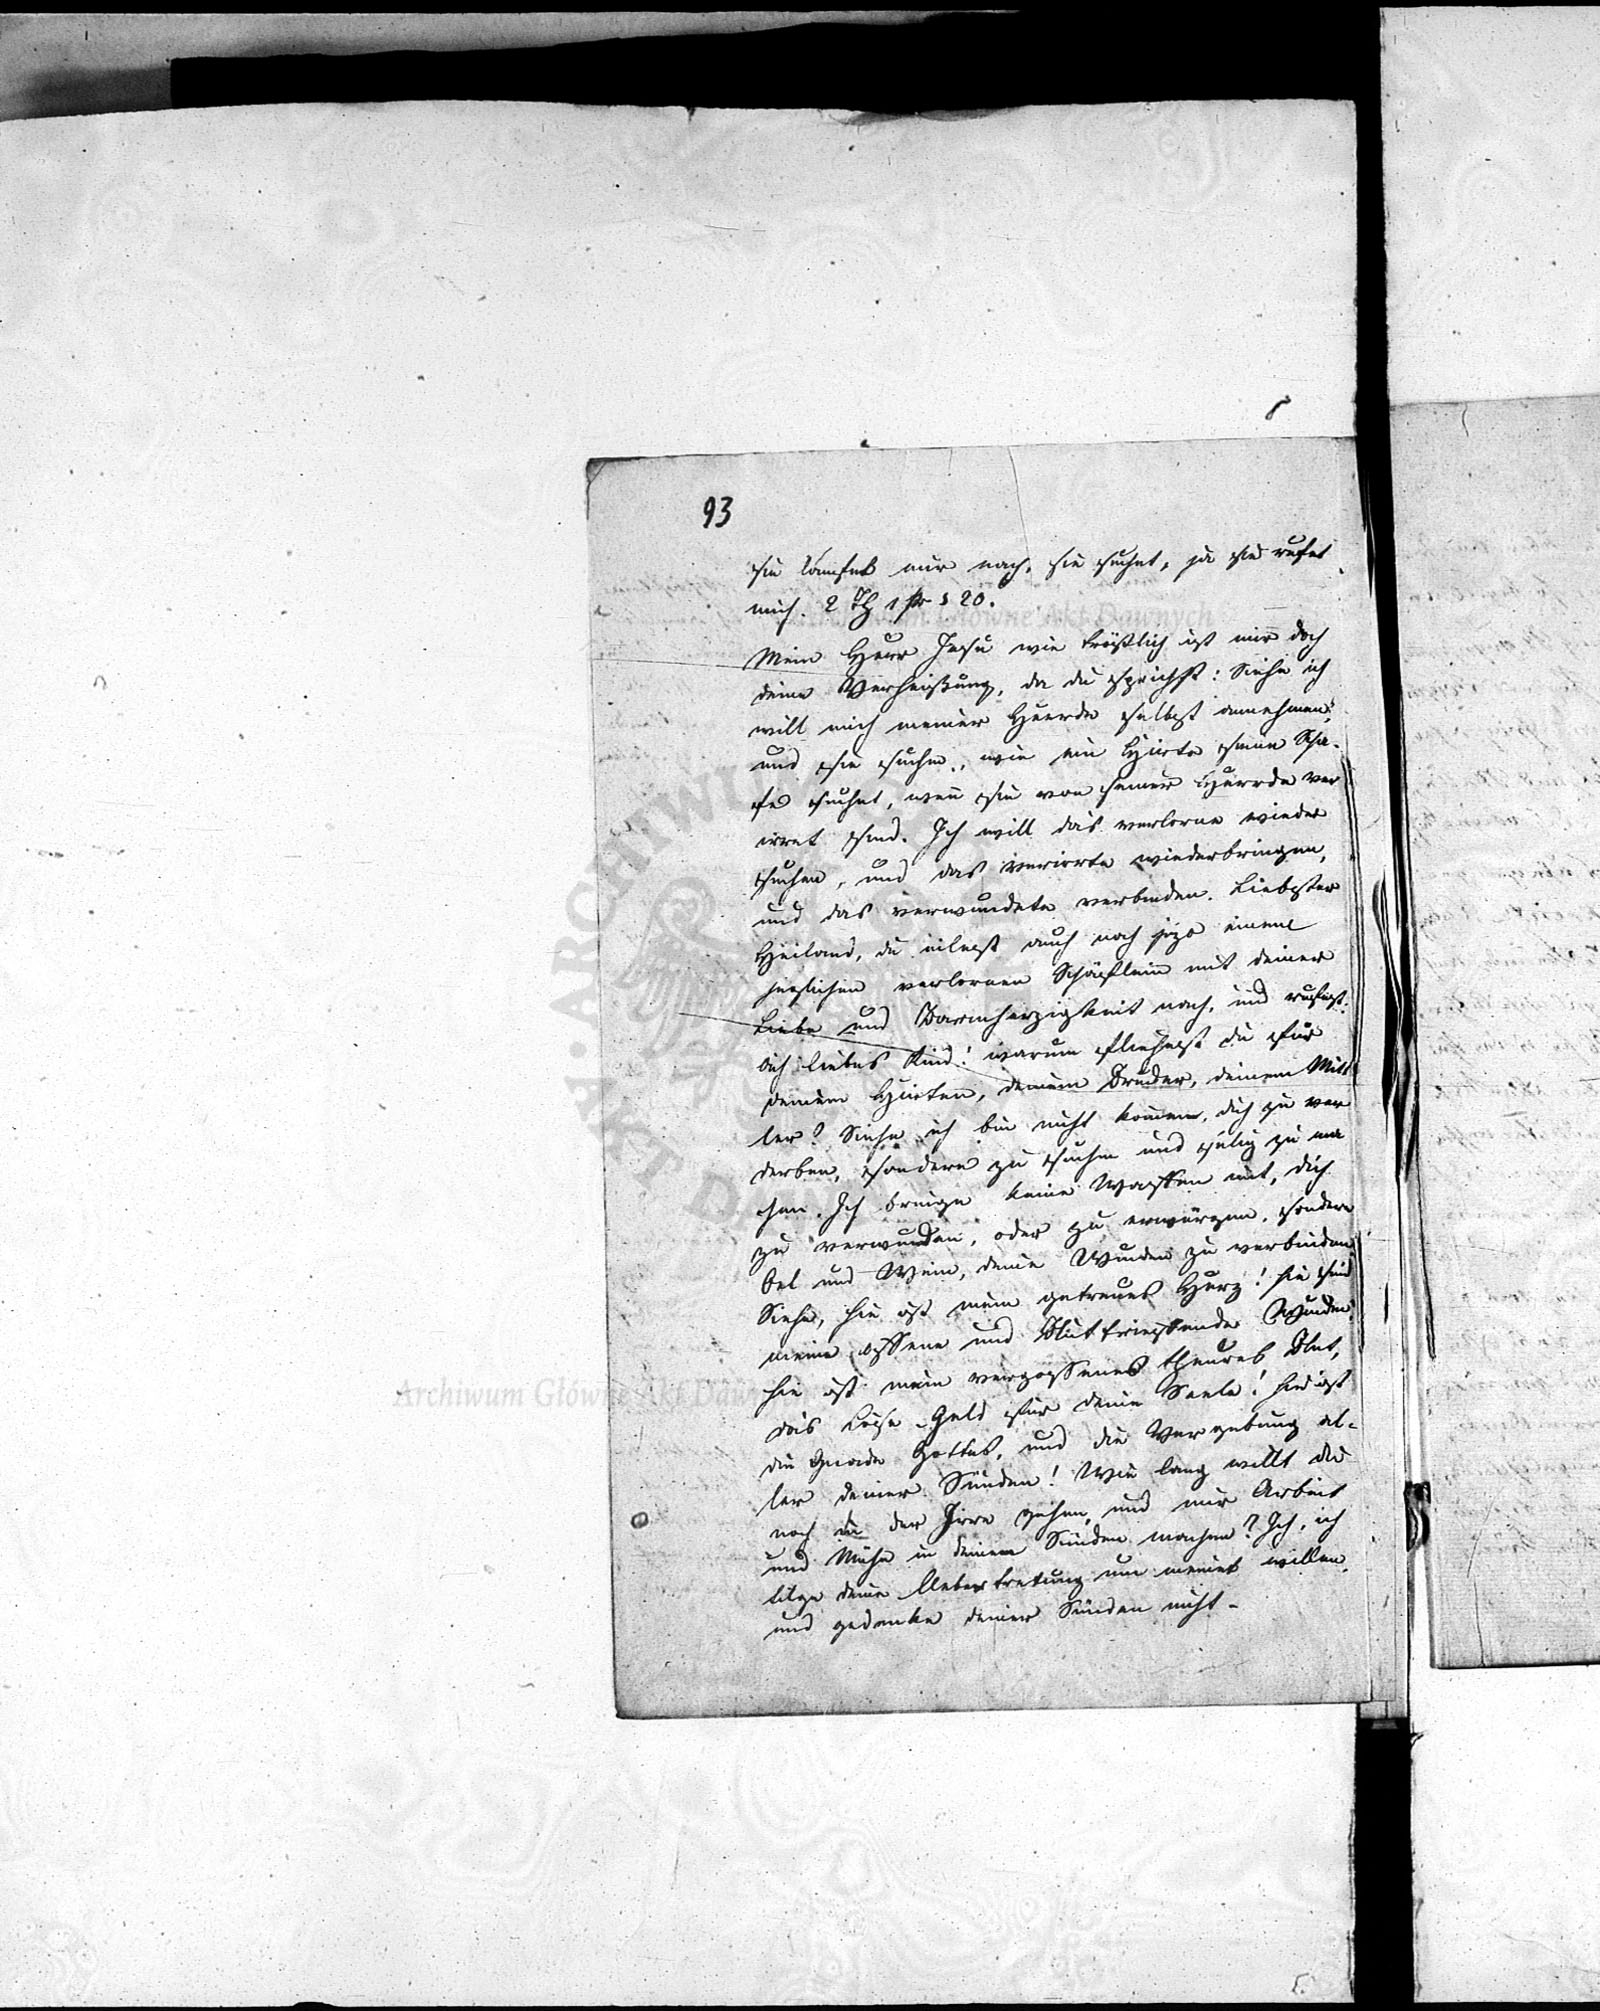 93
sie laufet mir nach, sie suchet, ja sie rufet
mich. 2 Th 1 s 20.
Mein Herr Jesu wie tröstlich ist mir doch
deine Verheißung, da du sprichst: Siehe ich
will mich meiner Heerde selbst annehmen,
und sie suchen, wie ein Hirte seine Scha-
fe suchet, wen sie von seiner Heerde ver
irret sind. Ich will das verlorne wieder
suchen, und das verirrte wiederbringen,
und das verwundete verbinden. Liebster
Heiland, du eilest auch noch jezo einem
jeglichen verlornen Schäflein mit deiner
Liebe und Barmherzigkeit nach, und rufest:
Ach liebes Kind! warum fliehest du für
deinem Hirten, deinem Bruder, deinem Mitt
ler? Siehe ich bin nicht komen, dich zu ver
derben, sondern zu suchen und selig zu ma
chen. Ich bringe keine Waffen mit, dich
zu verwunden, oder zu erwürgen, sondern
Oel und Wein, deine Wunden zu verbinden.
Siehe, hie ist mein getreues Herz! hie sind
meine offene und Bluttriefende Wunden,
hie ist mein vergossenes theures Blut,
das Löse-Geld für deine Seele! hie ist
die Gnade Gottes, und die Vergebung al-
ler deiner Sünden! Wie lang willt du
noch in der Irre gehen, und mir Arbeit
und Mühe in deinen Sünden machen? Ich, ich
tilge deine Uebertretung um meinet willen,
und gedenke deiner Sünden nicht-
Archiwum Główne Akt Dawnych
Archiwum Główne Akt Dawnych